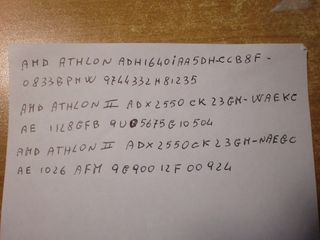 AMD ATHLON ADH1640iAA5DH-CCB8F-
0833BPMW 9744332H81235
AMD ATHLON II ADX2550CK23GM-WAEKC
AE 1128GFB 9U05675G10504
AMD ATHLON II ADX2550CK23GM-NAEGC
AE 1026 AFM 9G90012F00924